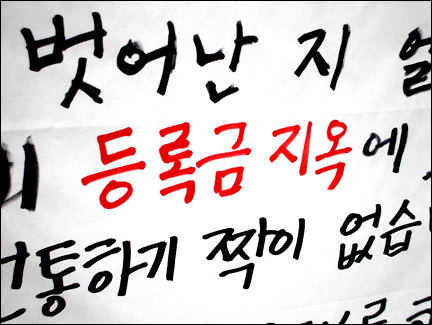 벗어난 지
등록금 지옥에
통하기 짝이 없습